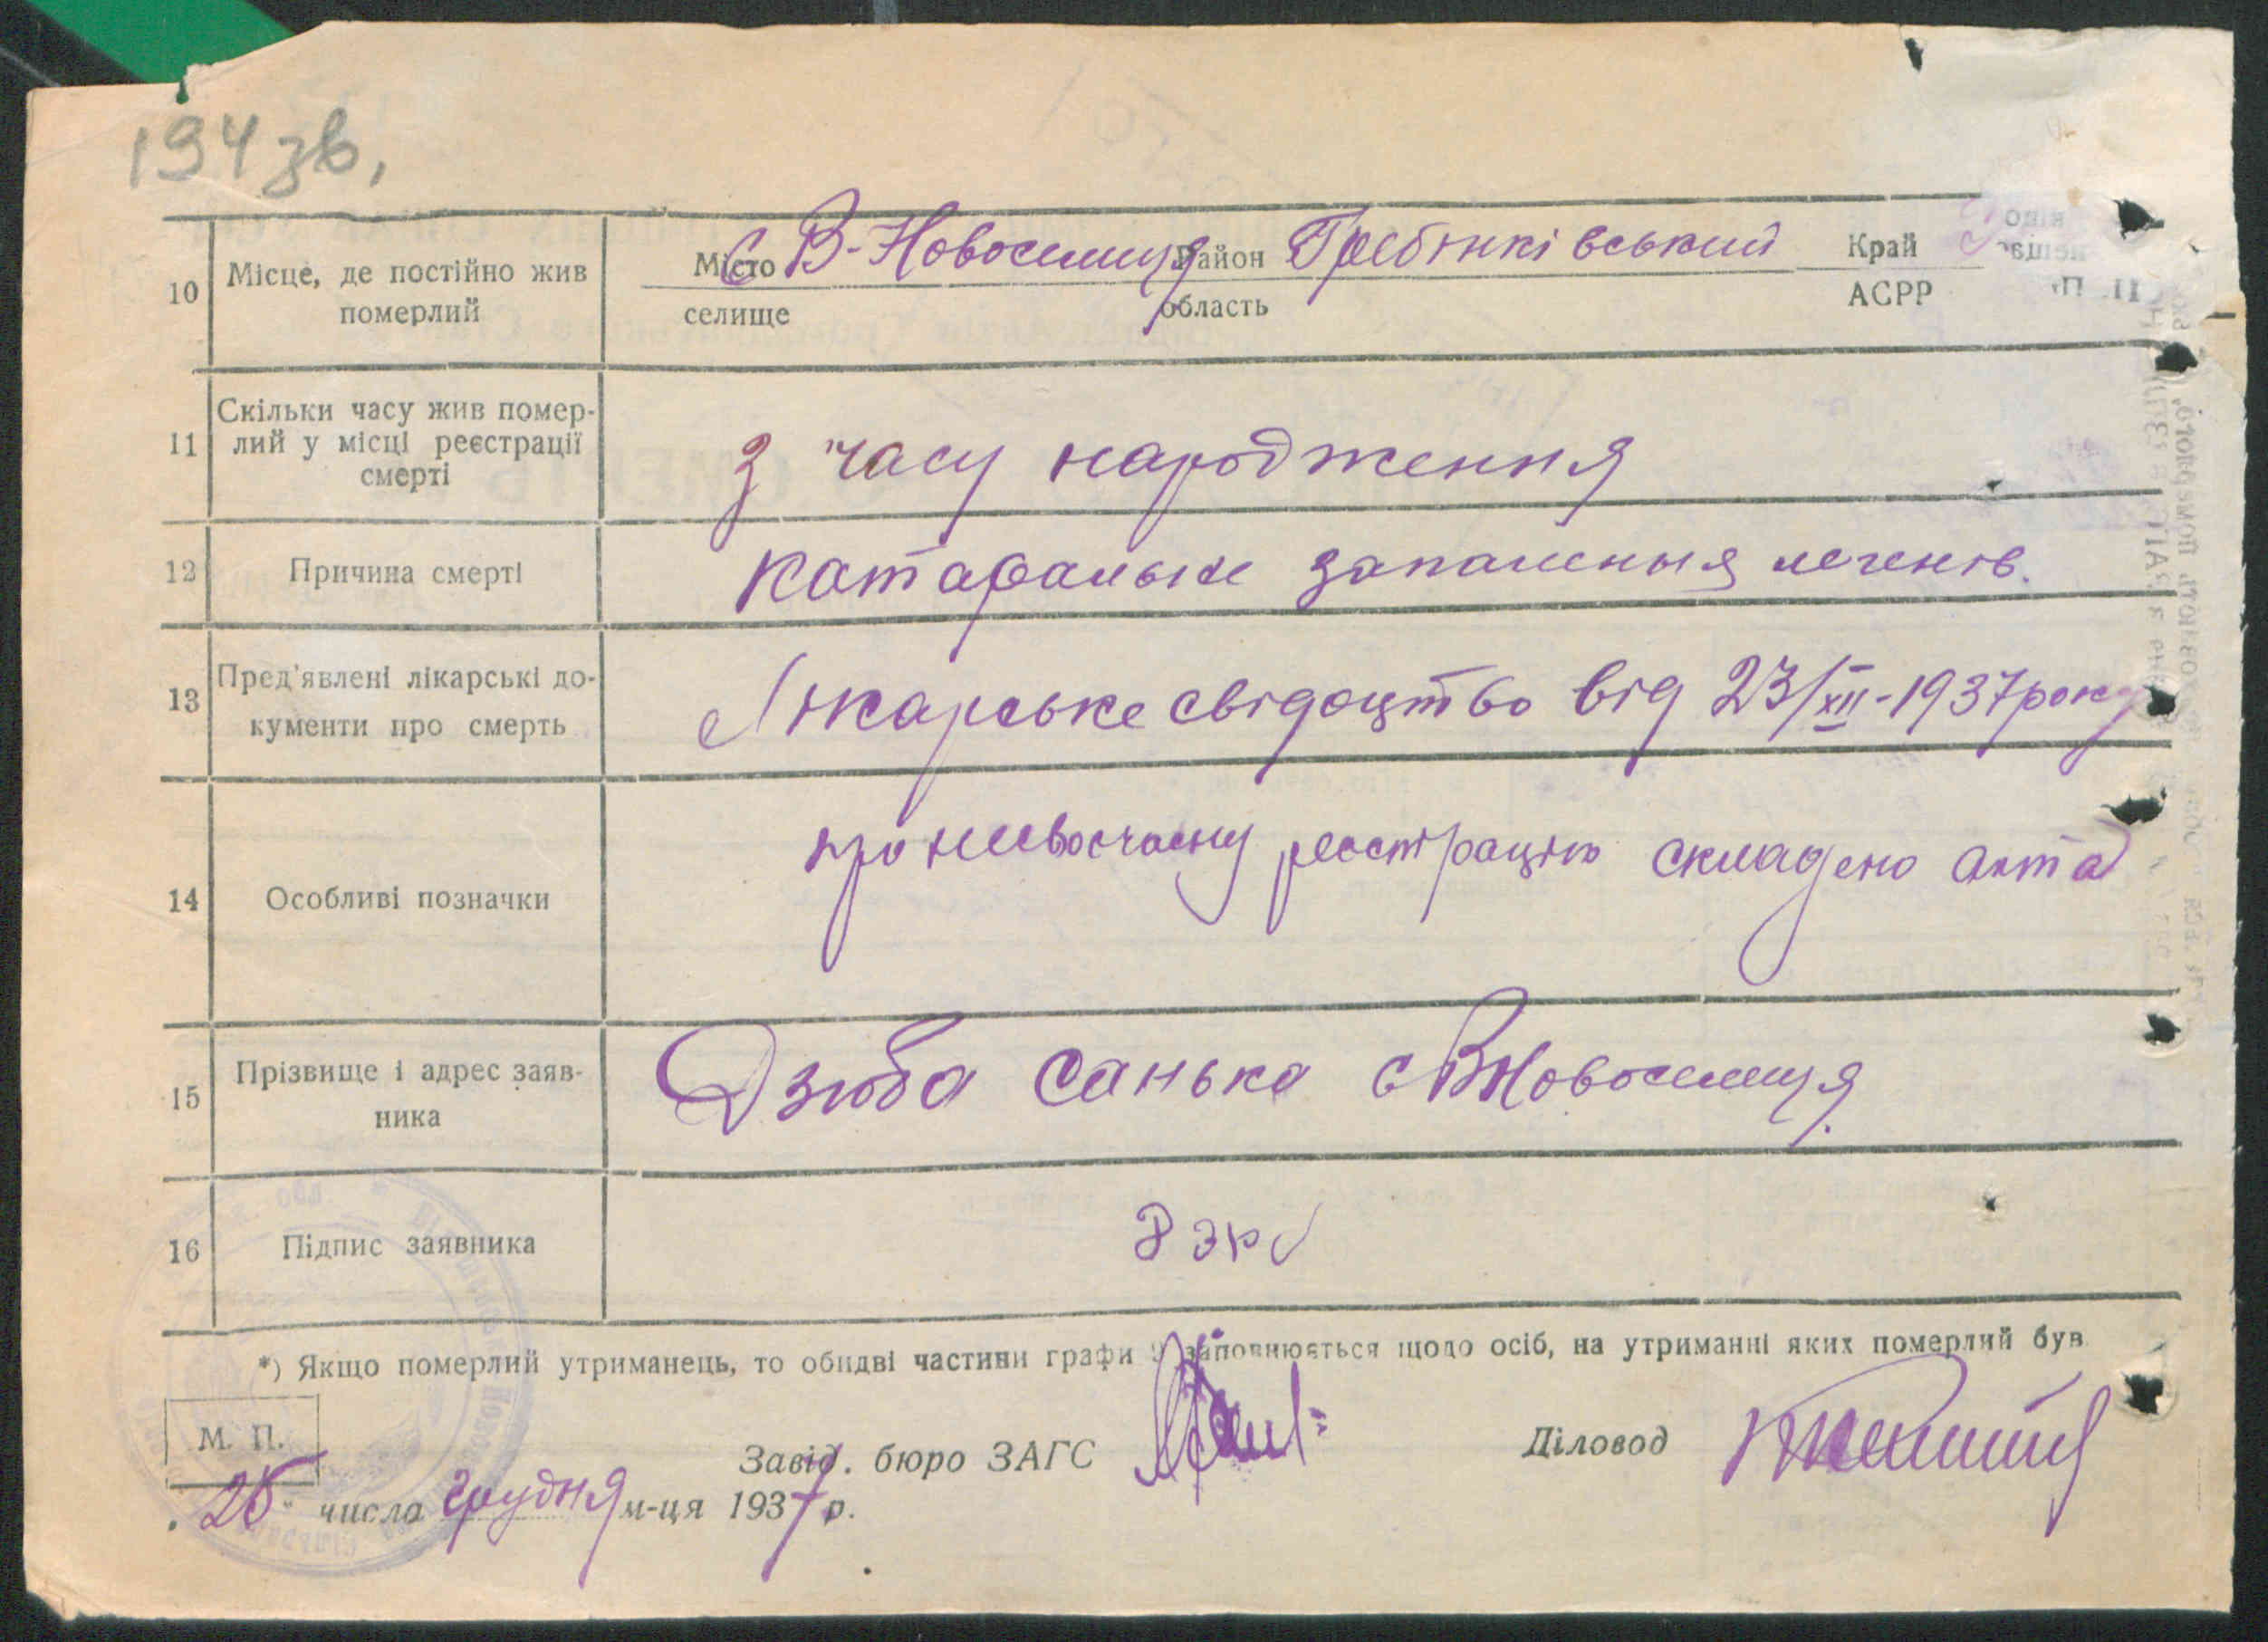 194 зв.
10 Місце, де постійно жив померлий
Місто с В-Новоселиця Район Гребінківський Край
селище область АСРР
11 Скільки часу жив помер-
лий у місці реєстрації
смерті
з часу народження
12 Причина смерті Катаральне запаленыя легенів.
13 Пред'явлені лікарські до-
кументи про смерть
Лікарське свідоцтво від 23/XII-1937 року
14 Особливі позначки
про невосчасну реєстрацію складено акта
15 Прізвище і адрес заяв-
ника
Дзюба Санька с ВНовоселиця.
16 Підпис заявника
*) Якщо померлий утриманець, то обидві частини графи 9 заповнюється щодо осіб, на утриманні яких померлий був
М. П.
Завід. бюро ЗАГС Діловод
25 числа грудня м-ця 1937 р.